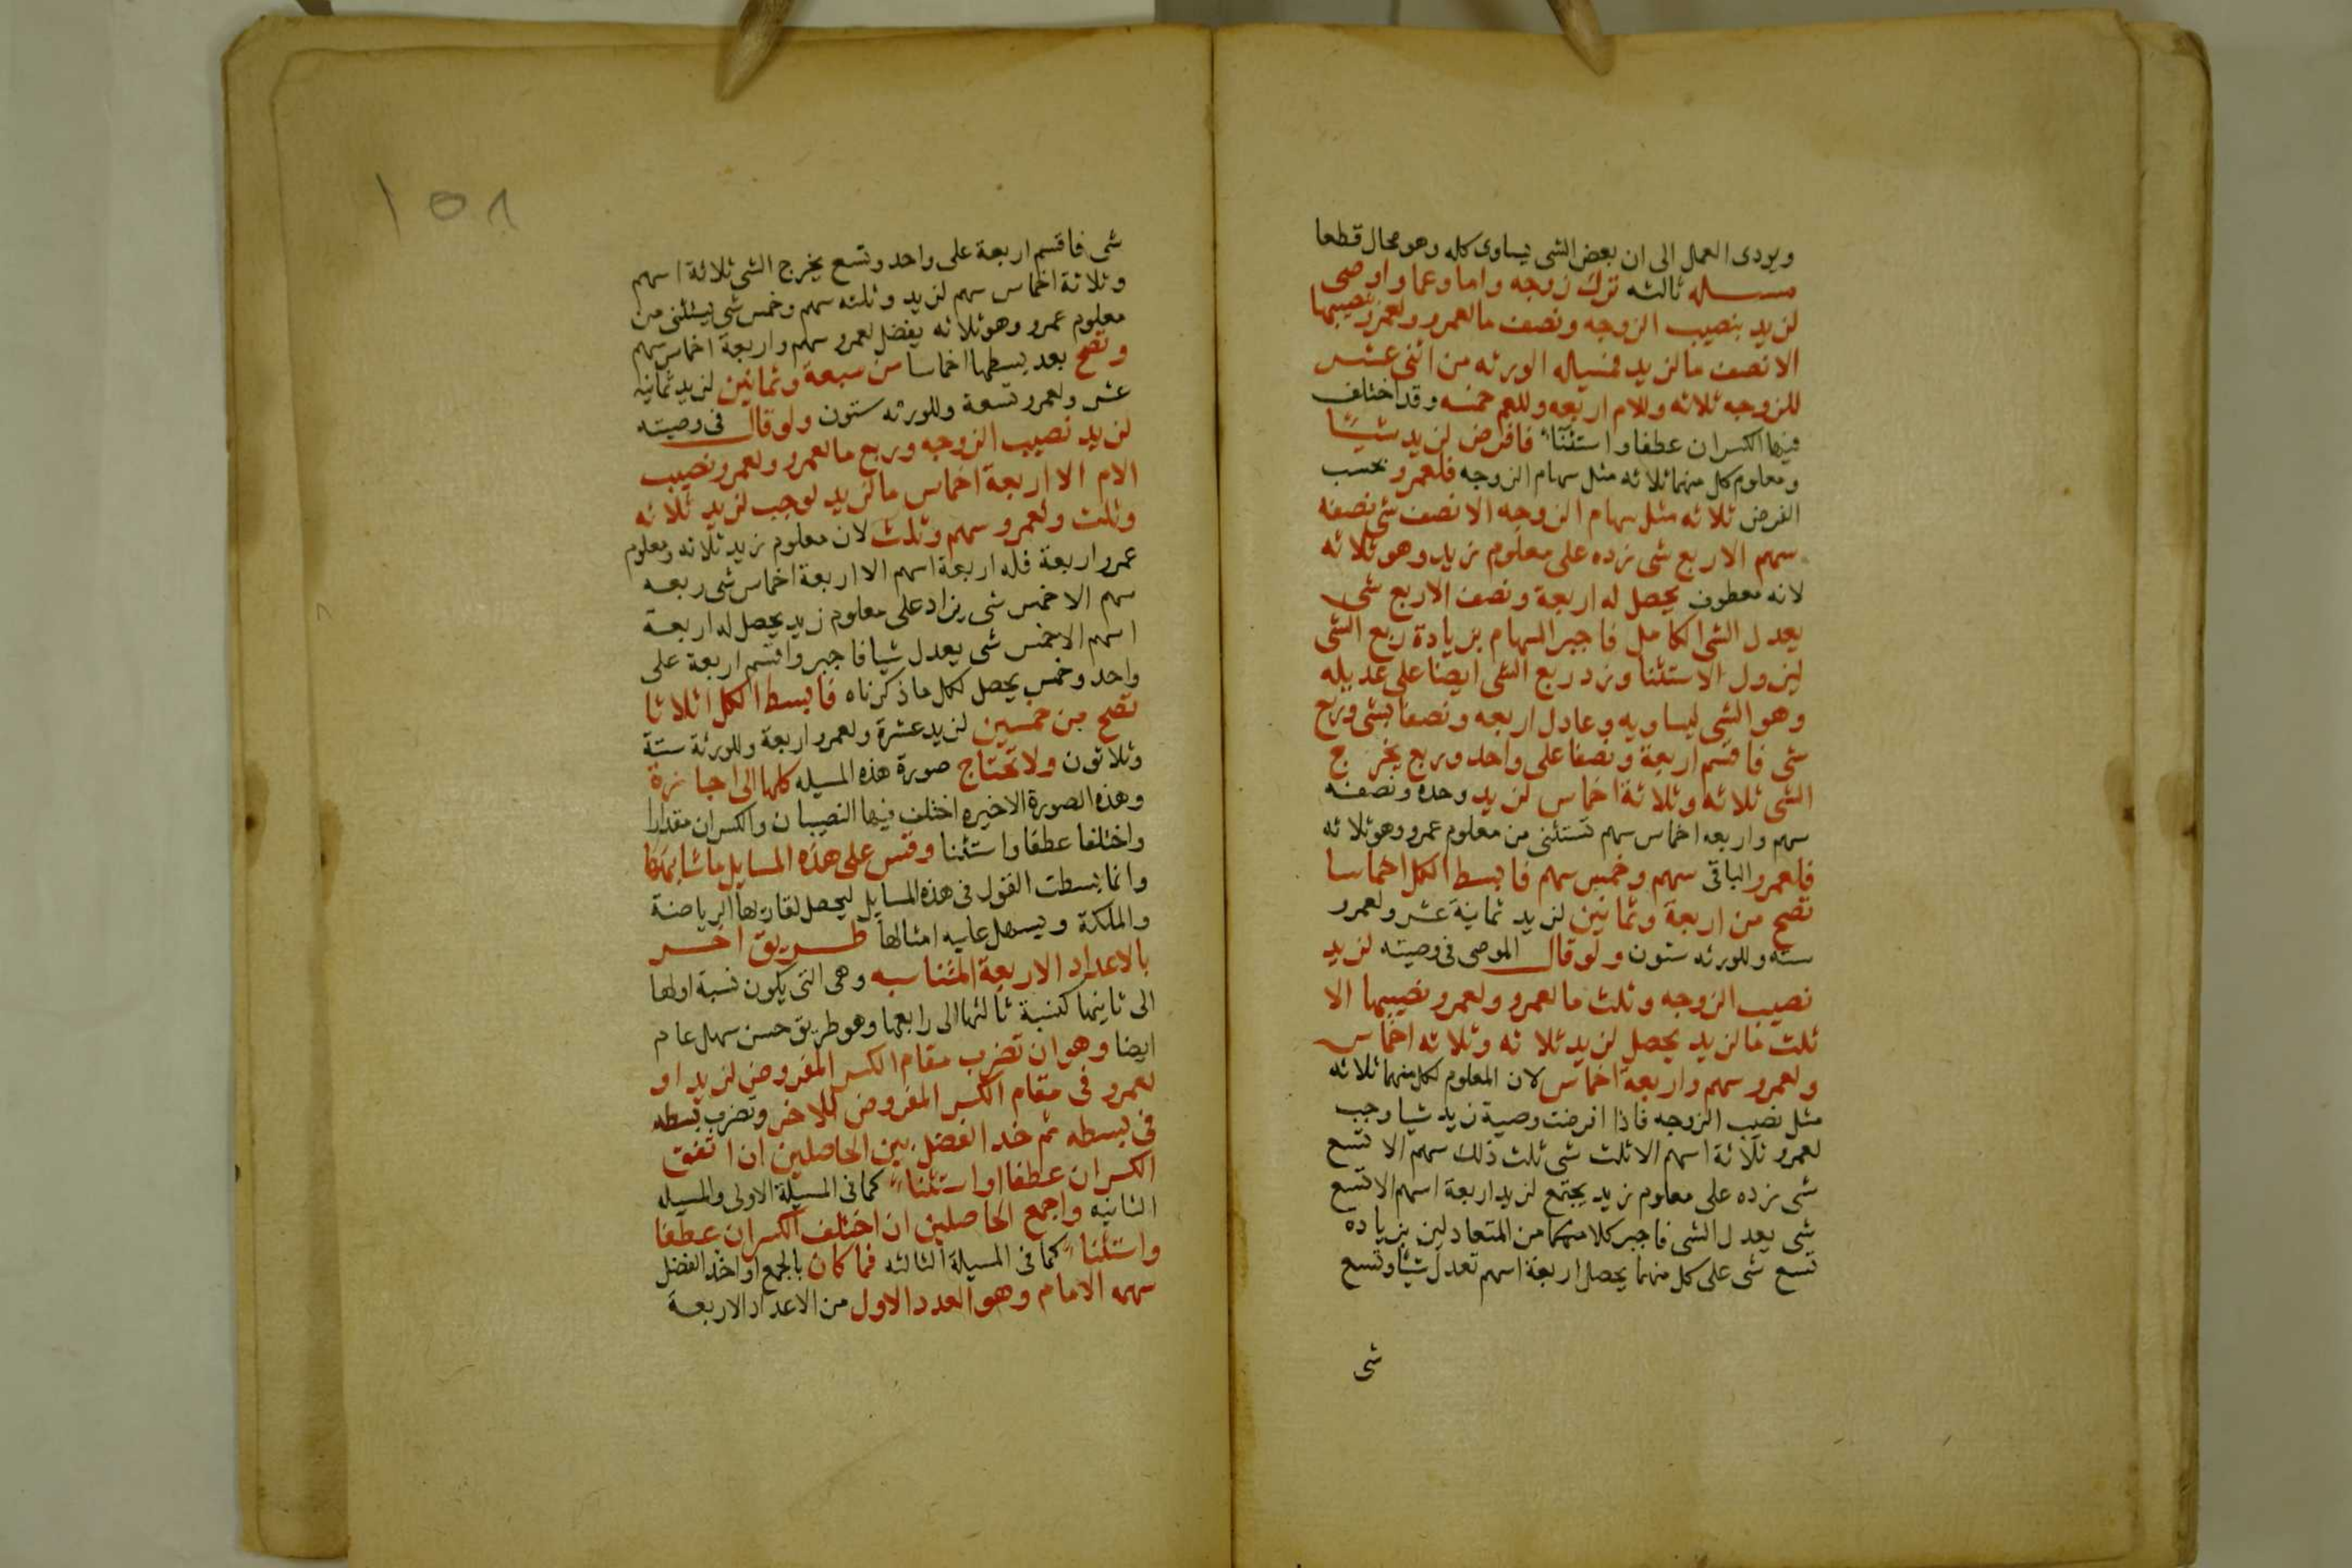 ويودى العمل الى ان بعض الشى يساوى كله وهو محال قطعا
مسله ثالثه ترك زوجه واما وعما واوصى
لزيد بنصيب الزوجه ونصف ما لعمرو ولعمرو نصيبها
الا نصف ما لزيد فمسيله الورثه من اثنى عشر
للزوجه ثلاثه وللام اربعه وللعم خمسه وقد اختلف
فيها الكسران عطفا واستثنآء فافرض لزيد شيئا
ومعلوم كل منهما ثلاثه مثل سهام الزوجه فلعمرو بحسب
الفرض ثلاثه مثل سهام الزوجه الا نصف شى نصفه
سهم الا ربع شى زده على معلوم زيد وهو ثلاثه
لانه معطوف يحصل له اربعة ونصف الا ربع شى
يعدل الشى الكامل فاجبر السهام بزيادة ربع الشى
ليزول الاستثنا وزد ربع الشى ايضا على عديله
وهو الشى ليساويه وعادل اربعه ونصفا بشى وربع
شى فاقسم اربعة ونصفا على واحد وربع يخرج
الشى ثلاثه وثلاثة اخماس لزيد وحده ونصفه
سهم واربعه اخماس سهم تستثنى من معلوم عمرو وهو ثلاثه
فلعمرو الباقى سهم وخمس سهم فابسط الكل اخماسا
تصح من اربعة وثمانين لزيد ثمانية عشر ولعمرو
سته وللورثه ستون ولو قال الموصى فى وصيته لزيد
نصيب الزوجه وثلث ما لعمرو ولعمرو نصيبها الا
ثلث ما لزيد يحصل لزيد ثلاثه وثلاثه اخماس
ولعمرو سهم واربعة اخماس لان المعلوم لكل منهما ثلاثه
مثل نصيب الزوجه فاذا افرضت وصية زيد شيا وجب
لعمرو ثلاثة اسهم الا ثلث شى ثلث ذلك سهم الا تسع
شى زده على معلوم زيد يجتمع لزيد اربعة اسهم الا تسع
شى يعدل الشى فاجبر كلا منهما من المتعادلين بزياده
تسع شى على كل منهما يحصل اربعة اسهم تعدل شيئا وتسع
شى
١٥٨
شى فاقسم اربعة على واحد وتسع يخرج الشى ثلاثة اسهم
وثلاثة اخماس سهم لزيد وثلثه سهم وخمس شى يستثنى من
معلوم عمرو وهو ثلاثه يفضل لعمرو سهم واربعة اخماس سهم
وتصح بعد بسطها اخماسا من سبعة وثمانين لزيد ثمانيه
عشر ولعمرو تسعة وللورثه ستون ولو قال فى وصيته
لزيد نصيب الزوجه وربع ما لعمرو ولعمرو نصيب
الام الا اربعة اخماس ما لزيد لوجب لزيد ثلاثه
وثلث ولعمرو سهم وثلث لان معلوم زيد ثلاثه ومعلوم
عمرو اربعة فله اربعة اسهم الا اربعة اخماس شى ربعه
سهم الا خمس شى يزاد على معلوم زيد يحصل له اربعة
اسهم الا خمس شى يعدل شيا فاجبر واقسم اربعة على
واحد وخمس يحصل لكل ما ذكرناه فابسط الكل اثلاثا
تصح من خمسين لزيد عشرة ولعمرو اربعة وللورثة ستة
وثلاثون ولا تحتاج صورة هذه المسيله كلها الى اجازة
وهذه الصورة الاخيره اختلف فيها النصيبان والكسران مقدارا
واختلفا عطفا واستثنا وقس على هذه المسايل ما شابهها
وانما بسطت القول فى هذه المسايل ليحصل لقاريها الرياضة
والملكة ويسهل عليه امثالها طريق اخر
بالاعداد الاربعة المتناسبه وهى التى يكون نسبة اولها
الى ثانيها كنسبة ثالثها الى رابعها وهو طريق حسن سهل عام
ايضا وهو ان تضرب مقام الكسر المفروض لزيد او
لعمرو فى مقام الكسر المفروض للاخر وتضرب بسطه
فى بسطه ثم خد الفضل بين الحاصلين ان اتفق
الكسران عطفا او استثناء كما فى المسيلة الاولى والمسيله
الثانيه واجمع الحاصلين ان اختلف الكسران عطفا
واستثناء كما فى المسيلة الثالثه فما كان بالجمع او اخذ الفضل
سهمه الامام وهو العدد الاول من الاعداد الاربعة